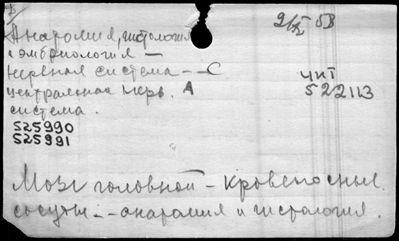 Анатомия, гистология
и эмбриология —
нервная система -- С
центральная нерв. А
система.
525990
525991
53
чит
522113
Мозг головной - кровеносные
сосуды -- анатомия и гистология.